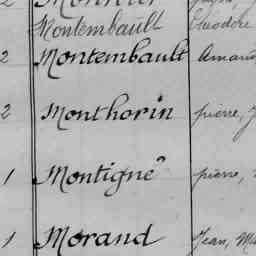 Montembault Théodore
2 Montembault
2 Monthorin pierre,
1 Montigné pierre,
1 Morand Jean,